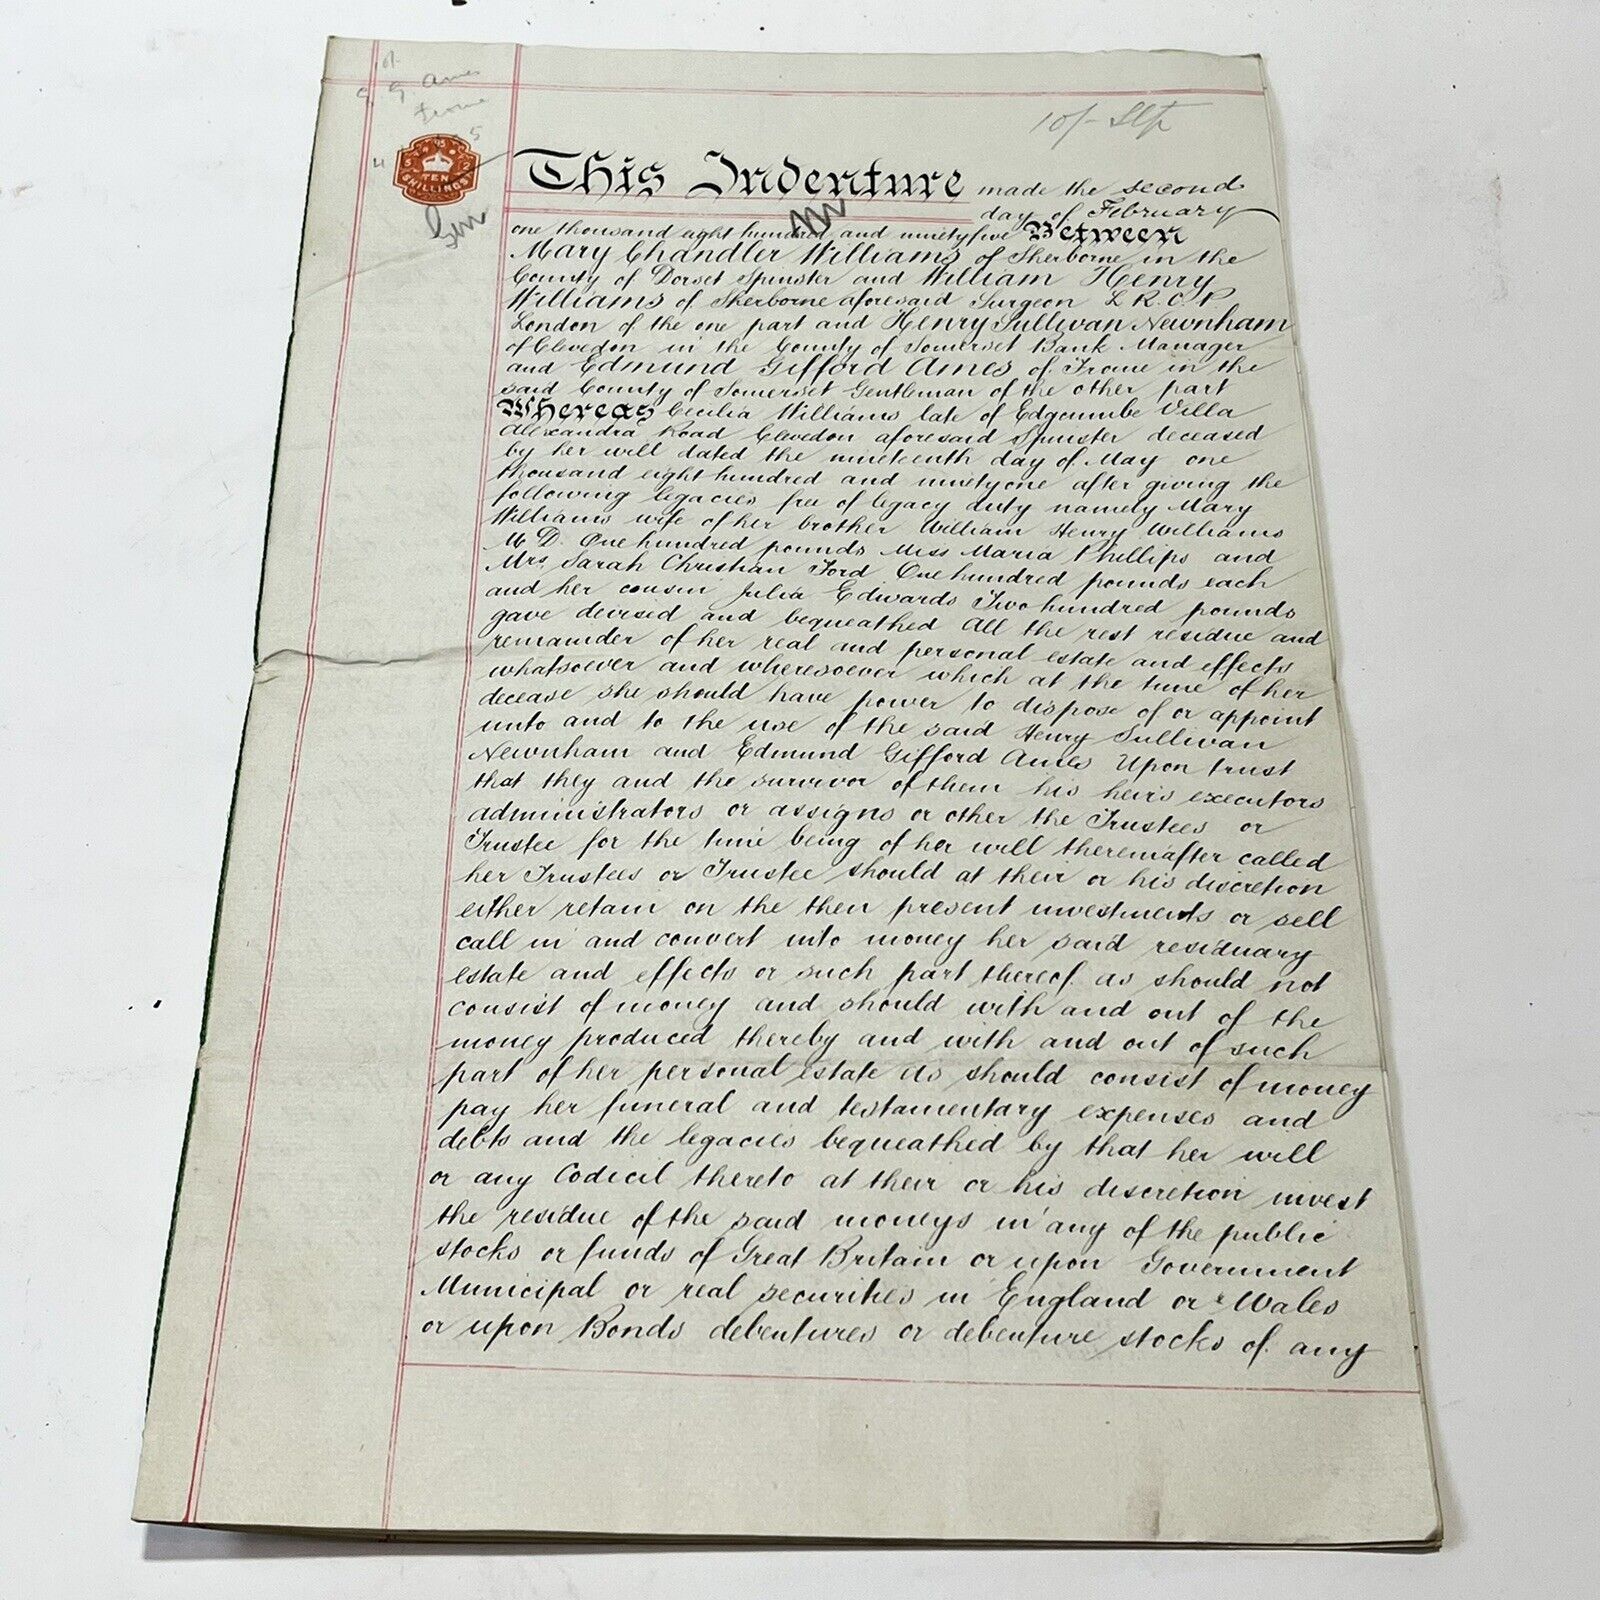 of
E. G. Ames
Frome
10/- Stp
TEN
SHILLINGS
This Indenture made the second
day of February
one thousand eight hundred and ninetyfive Between
Mary Chandler Williams of Sherborne in the
County of Dorset Spinster and William Henry
Williams of Sherborne aforesaid Surgeon L.R.C.P
London of the one part and Henry Sullivan Newnham
of Clevedon in the County of Somerset Bank Manager
and Edmund Gifford Ames of Frome in the
said County of Somerset Gentleman of the other part
Whereas Cecilia Williams late of Edgcumbe Villa
Alexandra Road Clevedon aforesaid Spinster deceased
by her will dated the nineteenth day of May one
thousand eight hundred and ninetyone after giving the
following legacies free of legacy duty namely Mary
Williams wife of her brother William Henry Williams
M D. One hundred pounds Miss Maria Phillips and
Mrs. Sarah Christian Ford One hundred pounds each
and her cousin Julia Edwards Two hundred pounds
gave devised and bequeathed All the rest residue and
remainder of her real and personal estate and effects
whatsoever and wheresoever which at the time of her
decease she should have power to dispose of or appoint
unto and to the use of the said Henry Sullivan
Newnham and Edmund Gifford Ames Upon trust
that they and the survivor of them his heirs executors
administrators or assigns or other the Trustees or
Trustee for the time being of her will thereinafter called
her Trustees or Trustee should at their or his discretion
either retain on the then present investments or sell
call in and convert into money her said residuary
estate and effects or such part thereof as should not
consist of money and should with and out of the
money produced thereby and with and out of such
part of her personal estate as should consist of money
pay her funeral and testamentary expenses and
debts and the legacies bequeathed by that her will
or any Codicil thereto at their or his discretion invest
the residue of the said moneys in any of the public
stocks or funds of Great Britain or upon Government
Municipal or real securities in England or Wales
or upon Bonds debentures or debenture stocks of any